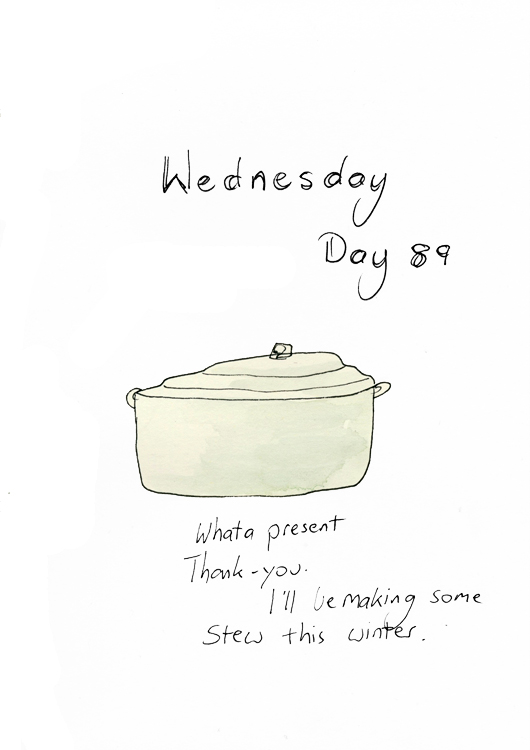 Wednesday
Day 89
What a present
Thank-you.
I'll be making some
Stew this winter.